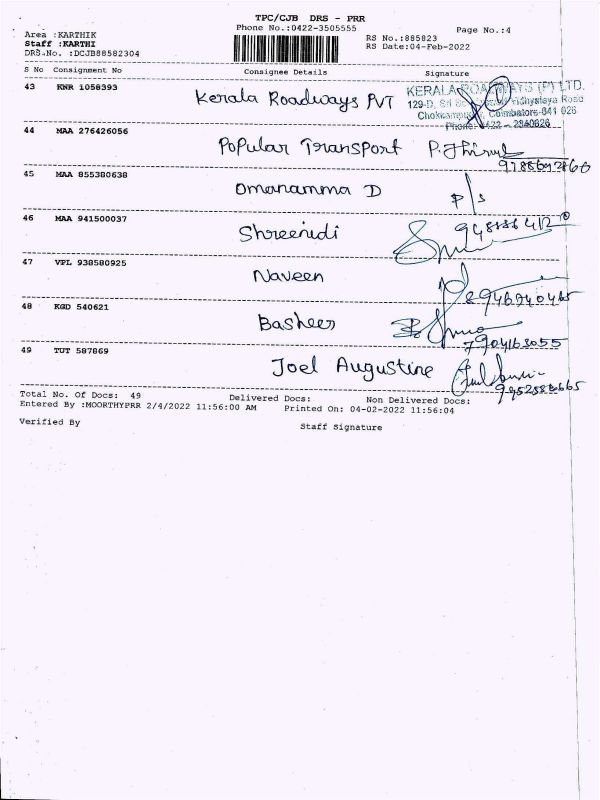 TPC/CJB DRS - PRR
Phone No.:0422-3505555
Page No.:4
Area :KARTHIK
Staff :KARTHI
DRS.No. :DCJB88582304
RS No.:885823
RS Date:04-Feb-2022
S No Consignment No Consignee Details Signature
43 KNR 1058393 Kerala Roadways PVT
KERALA ROADWAYS (P) LTD.
129-D, Sri Vidhyalaya Road
Coimbatore-641 026
Phone: 0422 - 2340826
44 MAA 276426056 Popular Transport
45 MAA 855380638 Omanamma D P/S
46 MAA 941500037 Shreenidi
47 VPL 938580925 Naveen
8946940465
48 KGD 540621 Basheer
7904163055
49 TUT 587869 Joel Augustine
Total No. Of Docs: 49 Delivered Docs: Non Delivered Docs:
Entered By :MOORTHYPRR 2/4/2022 11:56:00 AM Printed On: 04-02-2022 11:56:04
Verified By Staff Signature